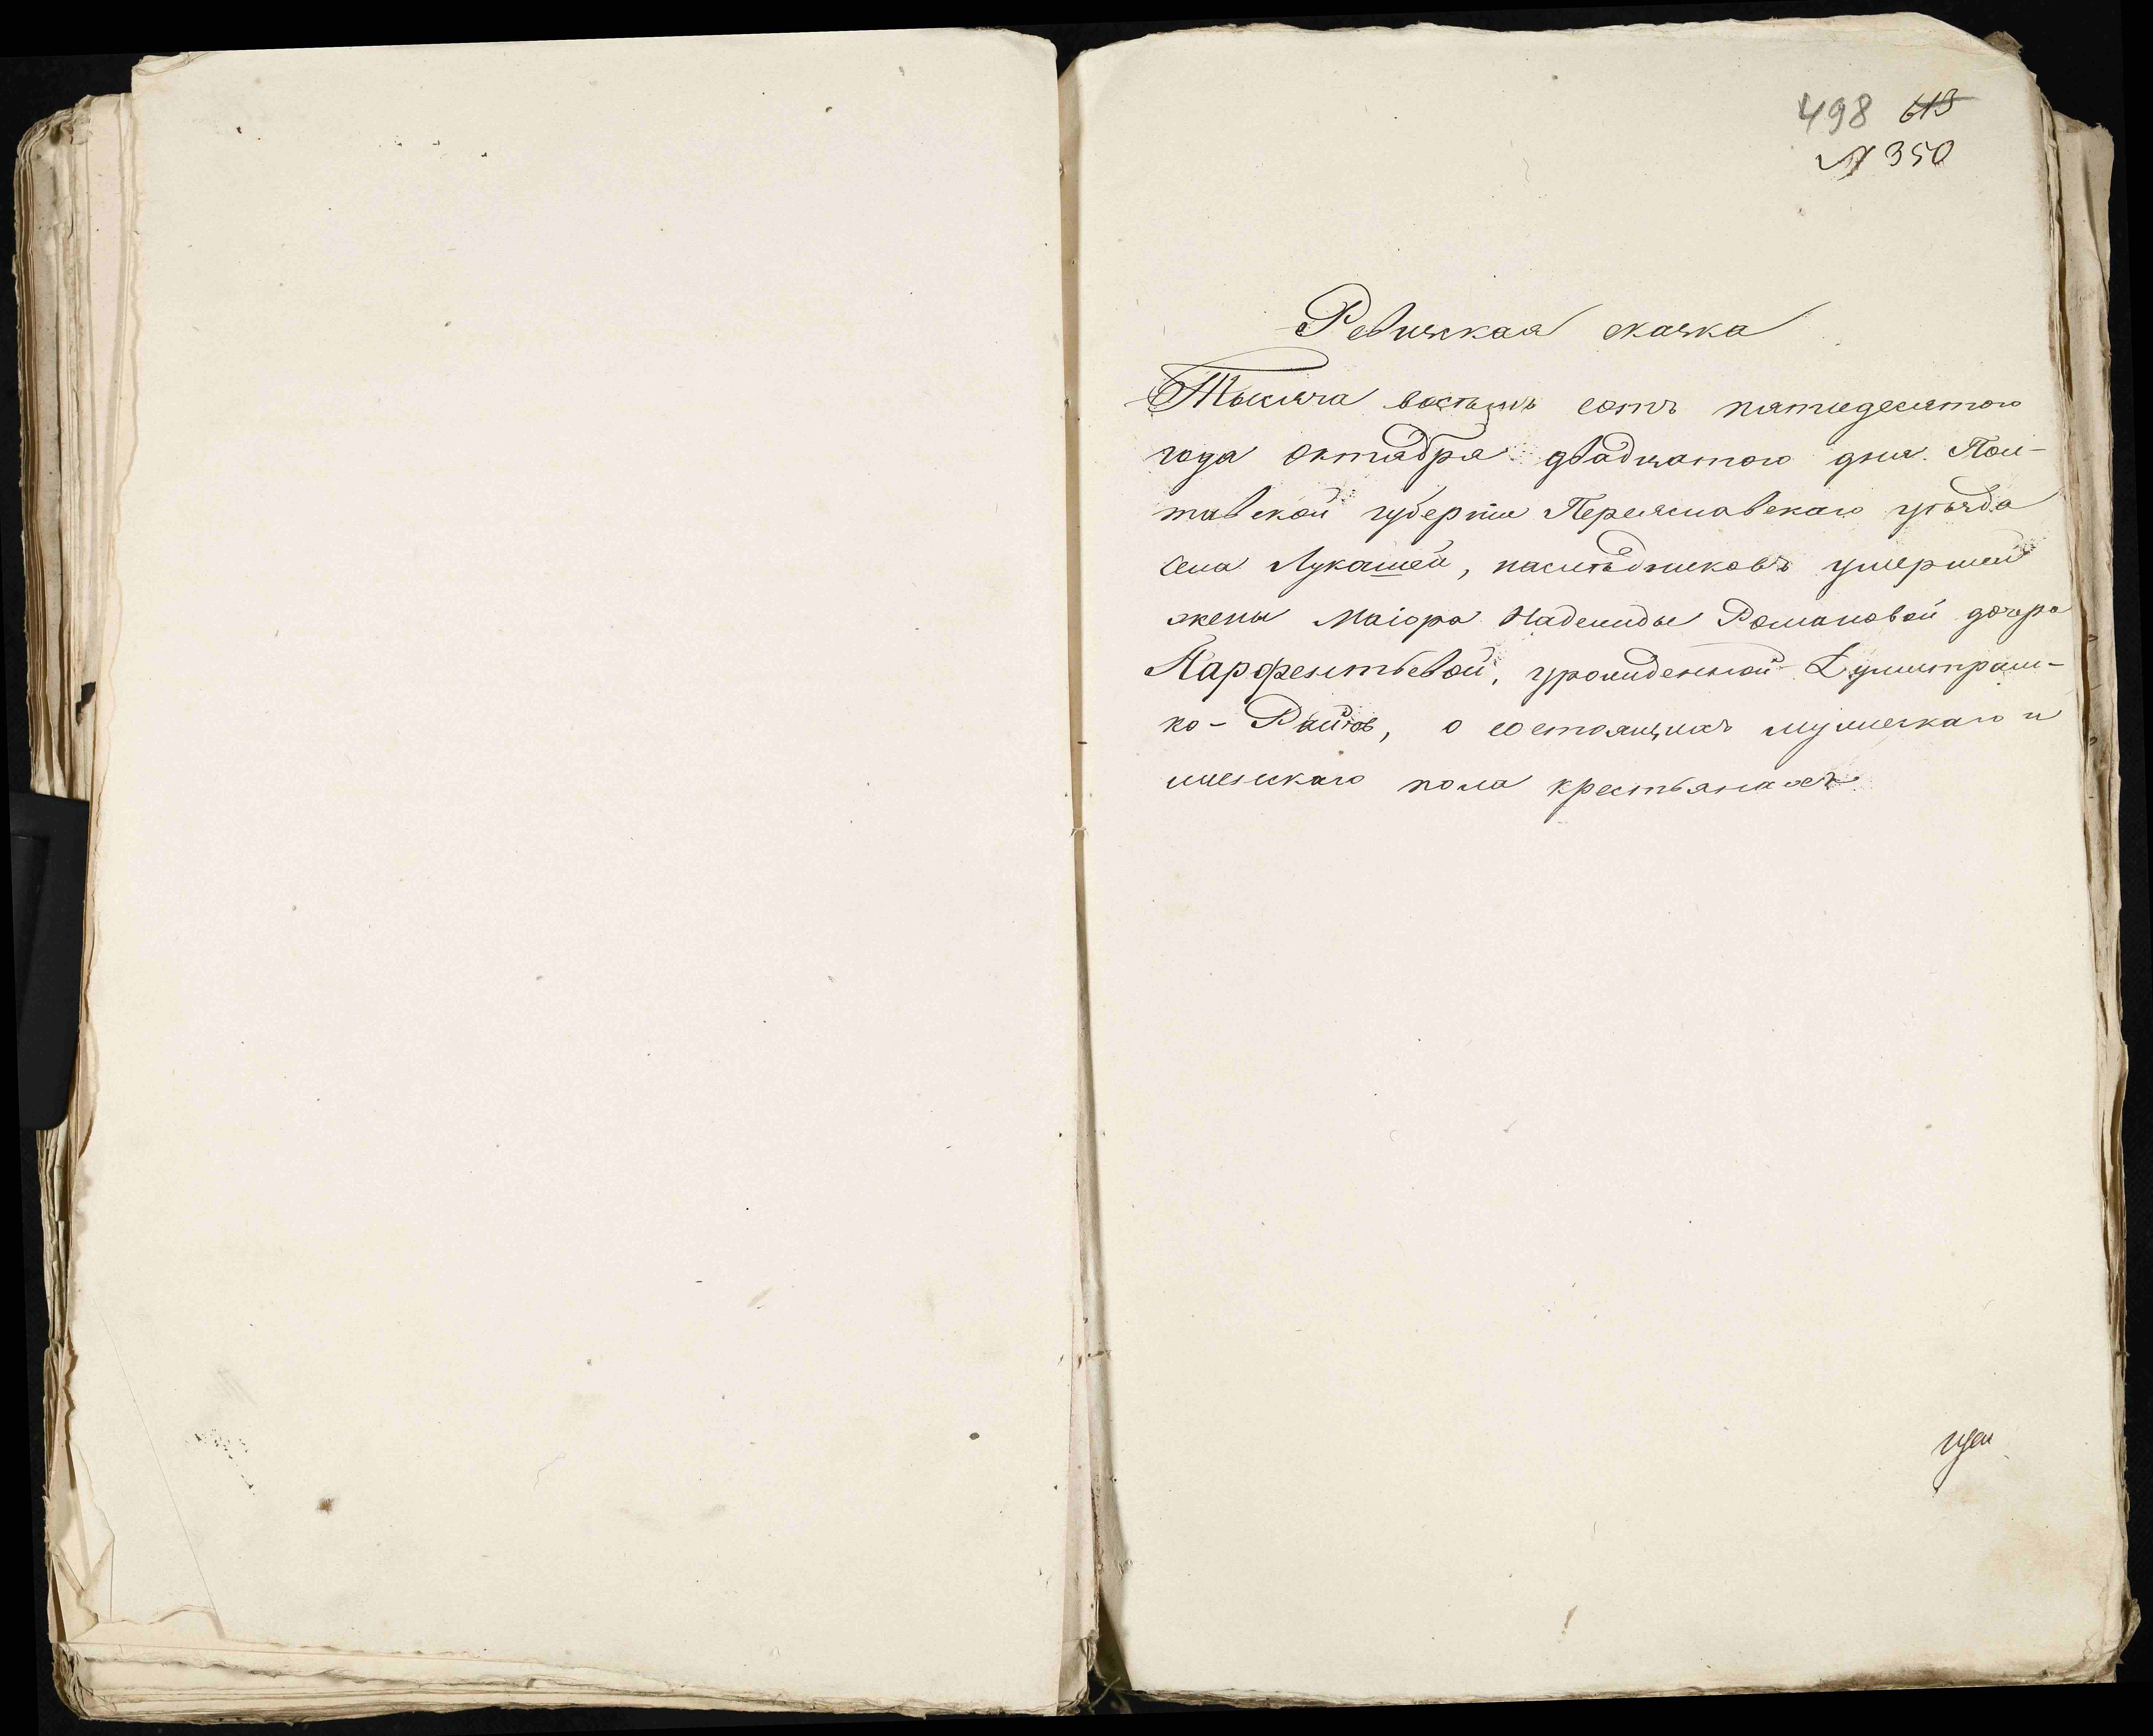 498 613
№ 350
Ревижская сказка
Тысяча восемь сотъ пятидесятого
года Октября двадцатого дня. Пол-
тавской губерніи Переяславскаго уѣзда
села Лукашей, наслѣдниковъ умершей
жены Маіора Надежды Романовой дочери
Парфентьевой, урожденной Думитраш-
ко-Райчъ, о состоящихъ мужескаго и
женскаго пола крестьянахъ